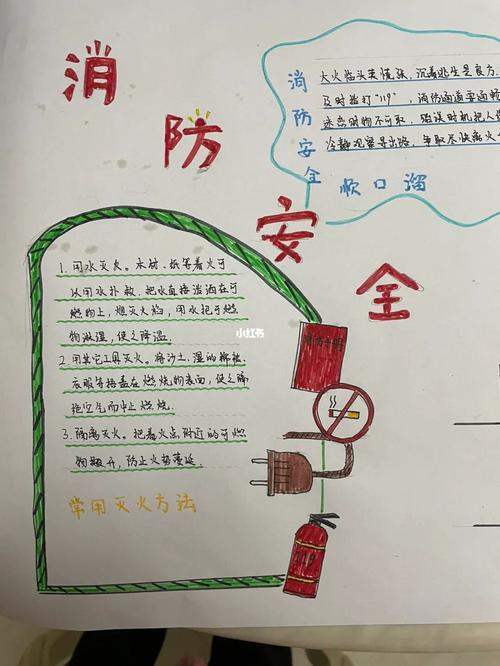 消防安全
大火临头莫慌张，沉着逃生是良方
及时拨打"119"，消防通道要通畅
迷恋财物不可取，贻误时机把人
冷静观察寻出路，争取尽快离火
消防安全
顺口溜
1. 用水灭火。木材、纸等着火可
以用水扑救，把水直接浇洒在可
燃物上，熄灭火焰，用水把可燃
物淋湿，使之降温.
2. 用其它工具灭火。将沙土、湿的棉被、
衣服等掩盖在燃烧物表面，使之隔
绝空气而中止燃烧.
3. 隔离灭火。把着火点附近的可燃
物搬开，防止火势蔓延.
常用灭火方法
小红书
119